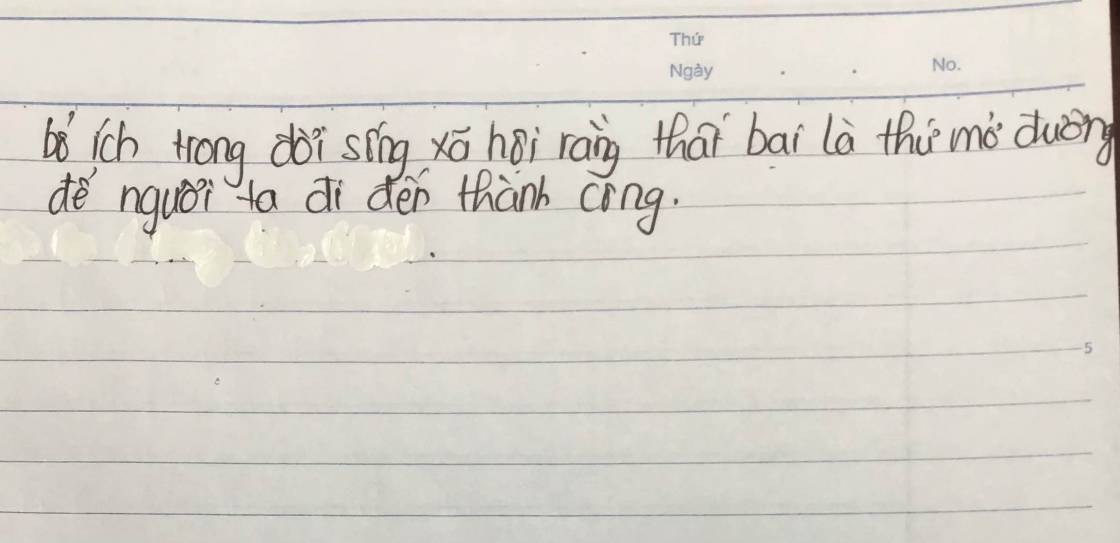 Thứ
Ngày No.
bổ ích trong đời sống xã hội rằng thất bại là thứ mở đường
để người ta đi đến thành công.
5